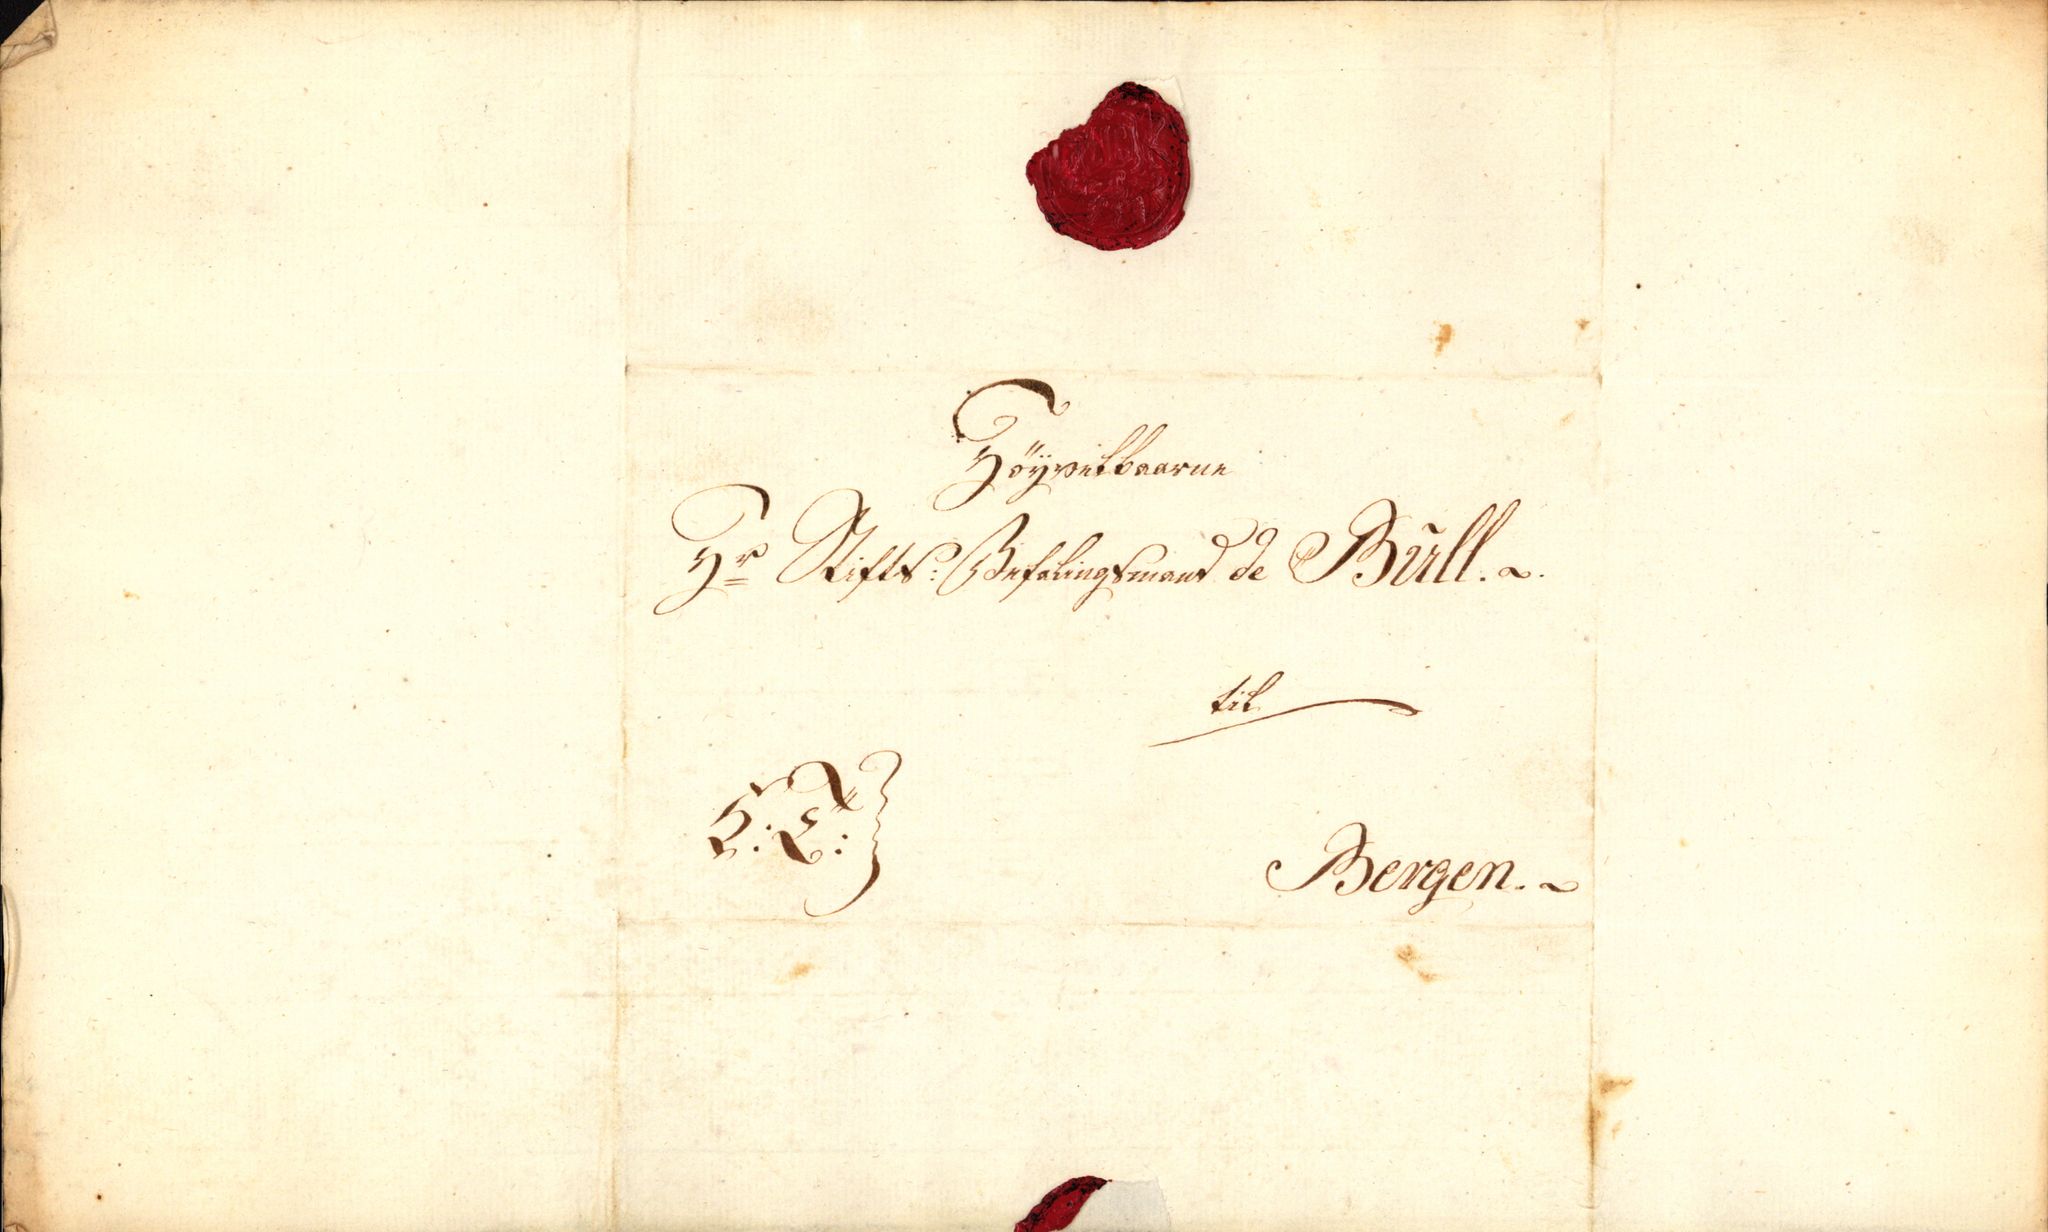 Höyvelbaarne
Hr Stifts: Befalingsmand de Bull.
til
Bergen.